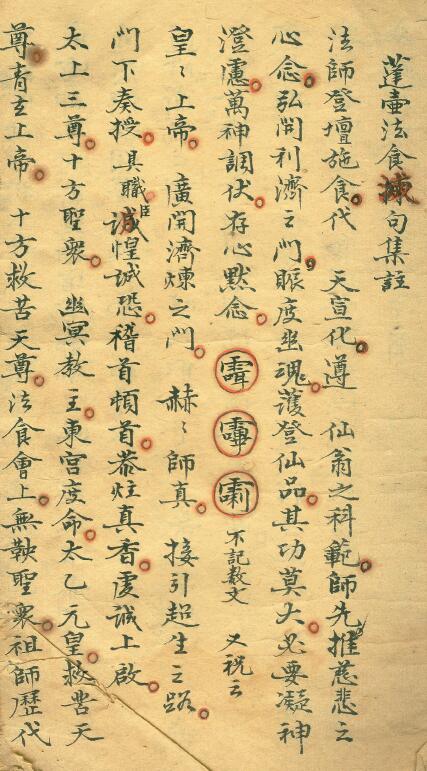 蓬壺法食煉句集註
法師登壇施食代　天宣化遵　仙翁之科範師先推慈悲之
心念弘開利濟之門賑度幽魂護登仙品其功莫大必要凝神
澄慮萬神調伏存心默念　不記数文　又祝云
皇〻上帝　廣開濟煉之門　赫〻師真　接引超生之路
門下奏授具職臣誠惶誠恐稽首頓首恭炷真香虔誠上啟
太上三尊十方聖衆　幽冥教主東宮度命太乙元皇救苦天
尊青玄上帝　十方救苦天尊法食會上無鞅聖衆祖師歷代